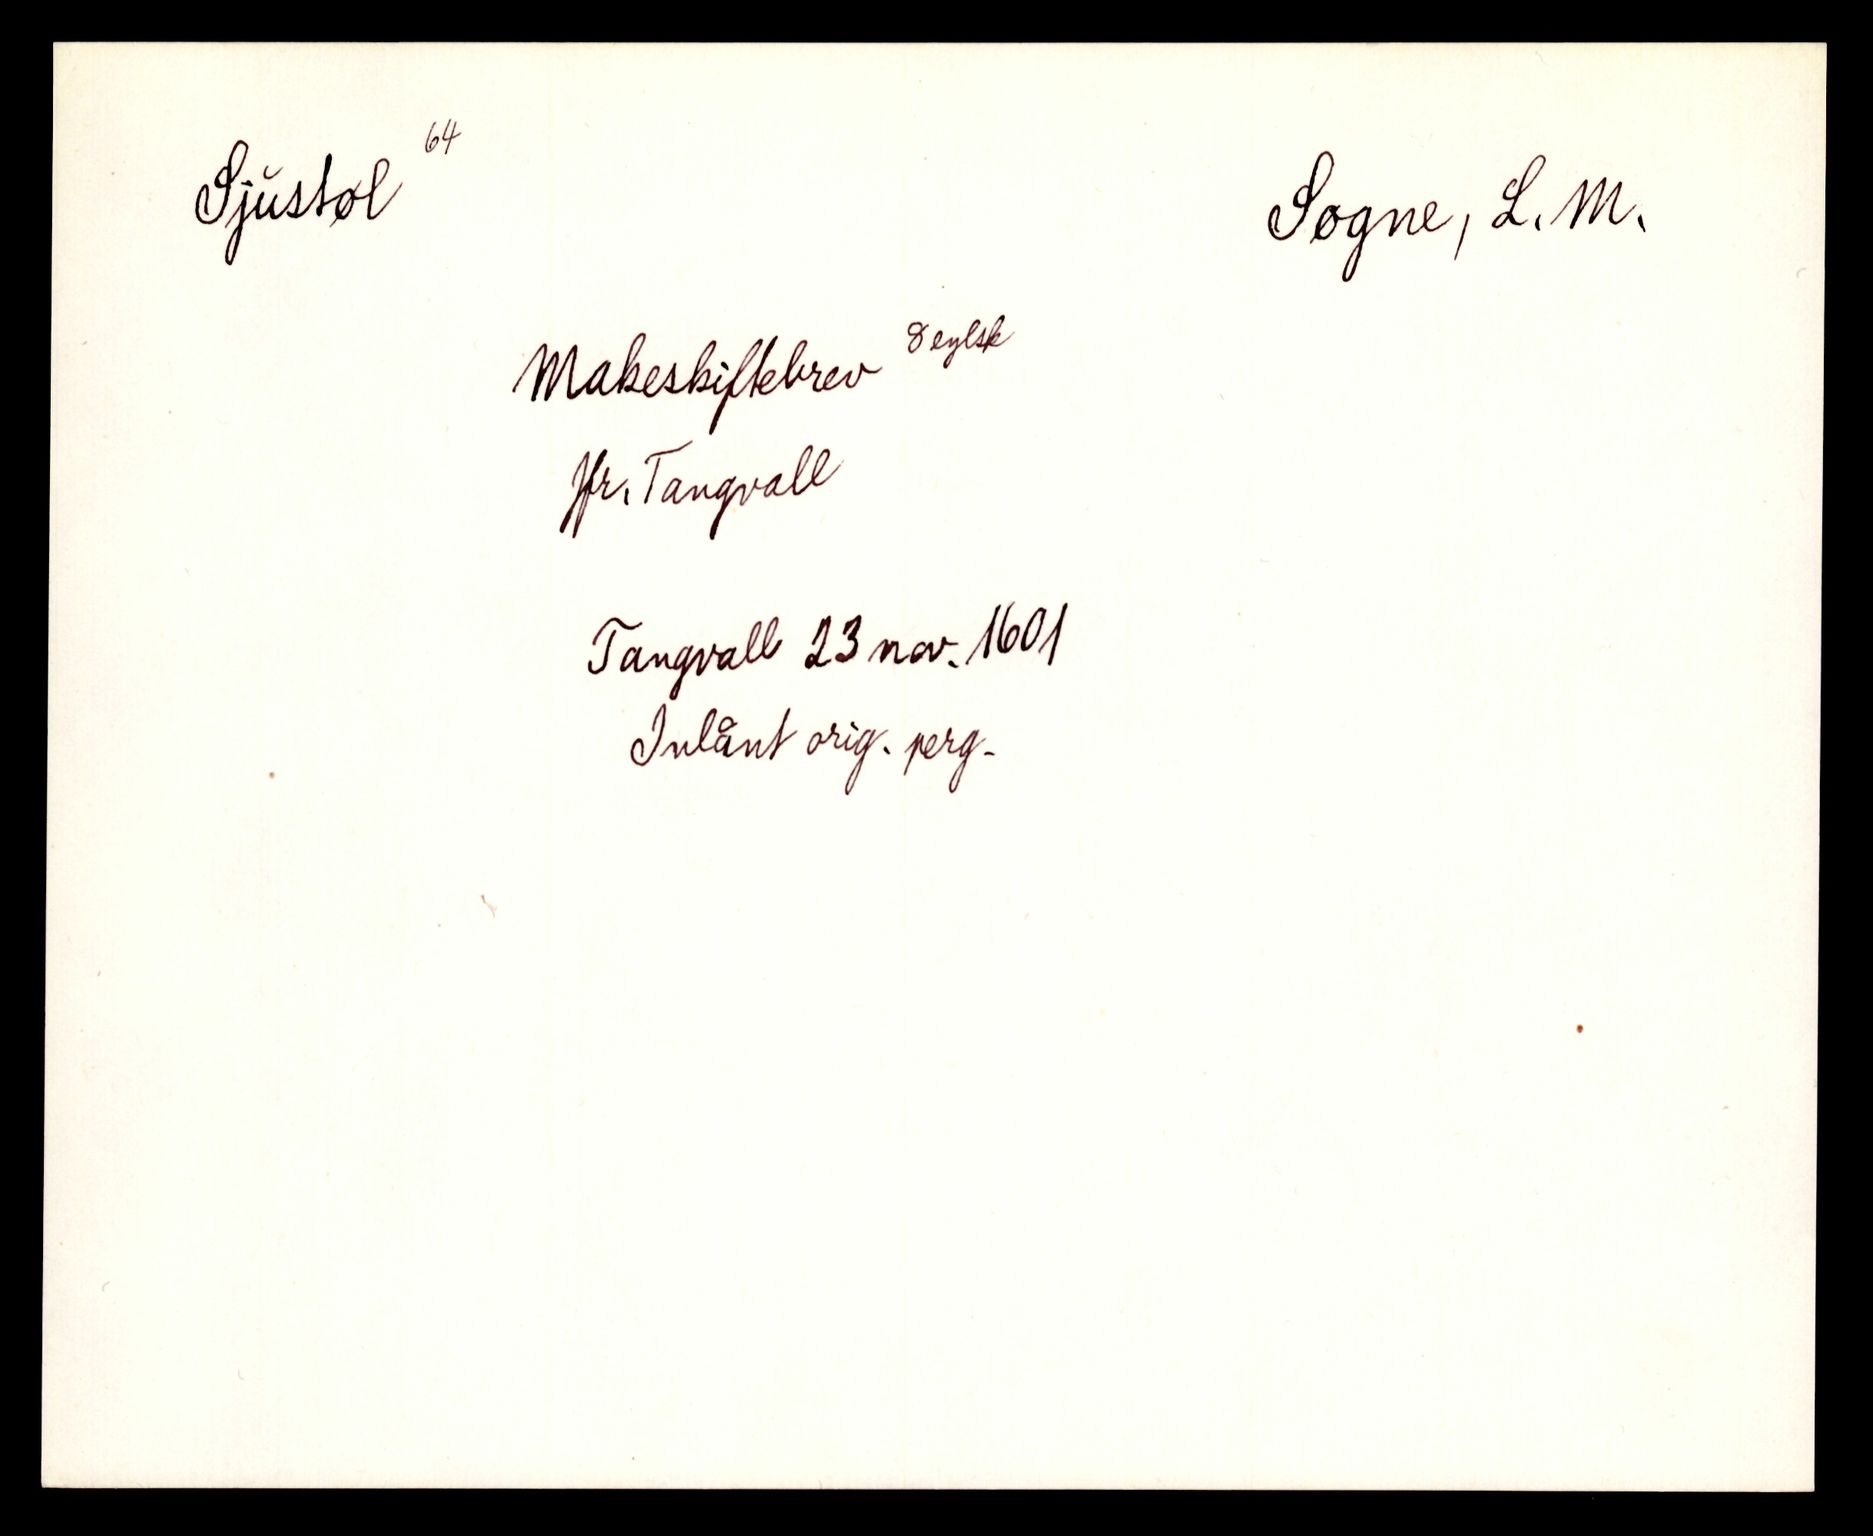 Sjustøl 64
Søgne, L. M.
Makeskiftebrev
Jfr. Tangvall
Tangvall 23 nov. 1601
Inlånt orig. perg.